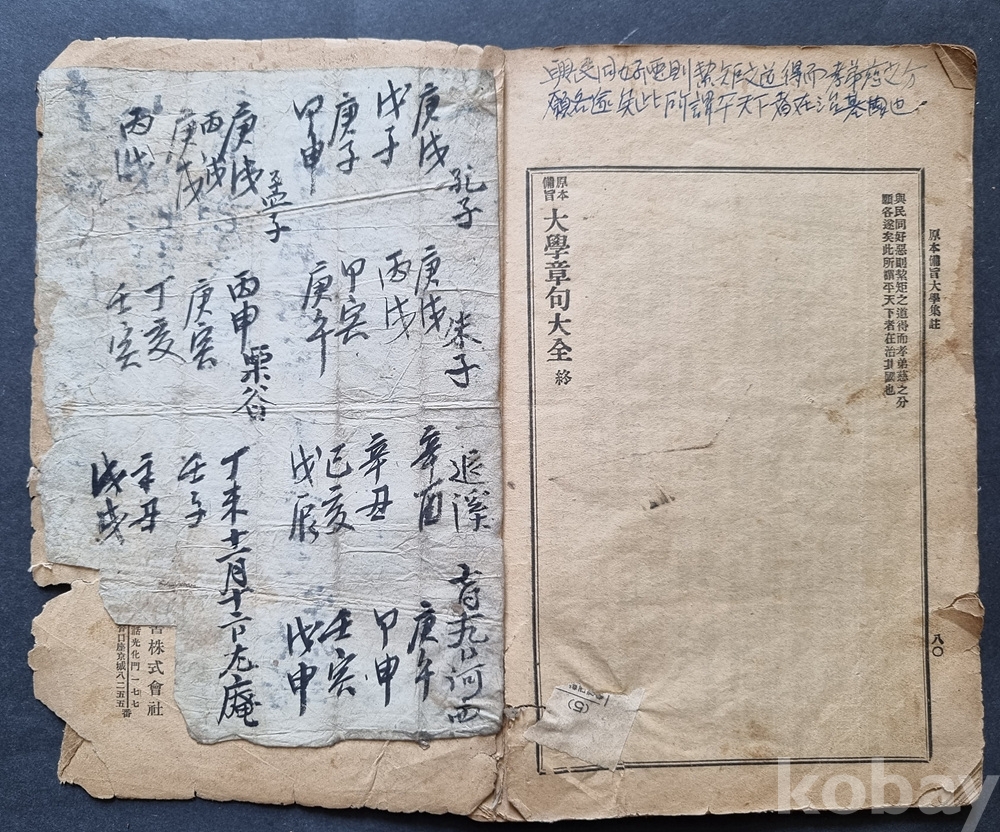 與民同好惡則絜矩之道得而孝弟慈之分
願各遂矣此所謂平天下者在治其國也
原本備旨大學集註
八〇
與民同好惡則絜矩之道得而孝弟慈之分
願各遂矣此所謂平天下者在治其國也
原本
備旨
大學章句大全 終
(5)
孔子
庚戌
戊子
庚子
甲申
孟子
庚戌
丙戌
庚戌
丙戌
朱子
庚戌
丙戌
甲寅
庚午
栗谷
丙申
庚寅
丁亥
壬寅
退溪
辛酉
辛丑
己亥
戊辰
尤庵
丁未
壬子
辛丑
戊戌
河西
庚午
甲申
壬寅
戊申
書株式會社
話光化門一一七七
口座京城八二五五番
kobay